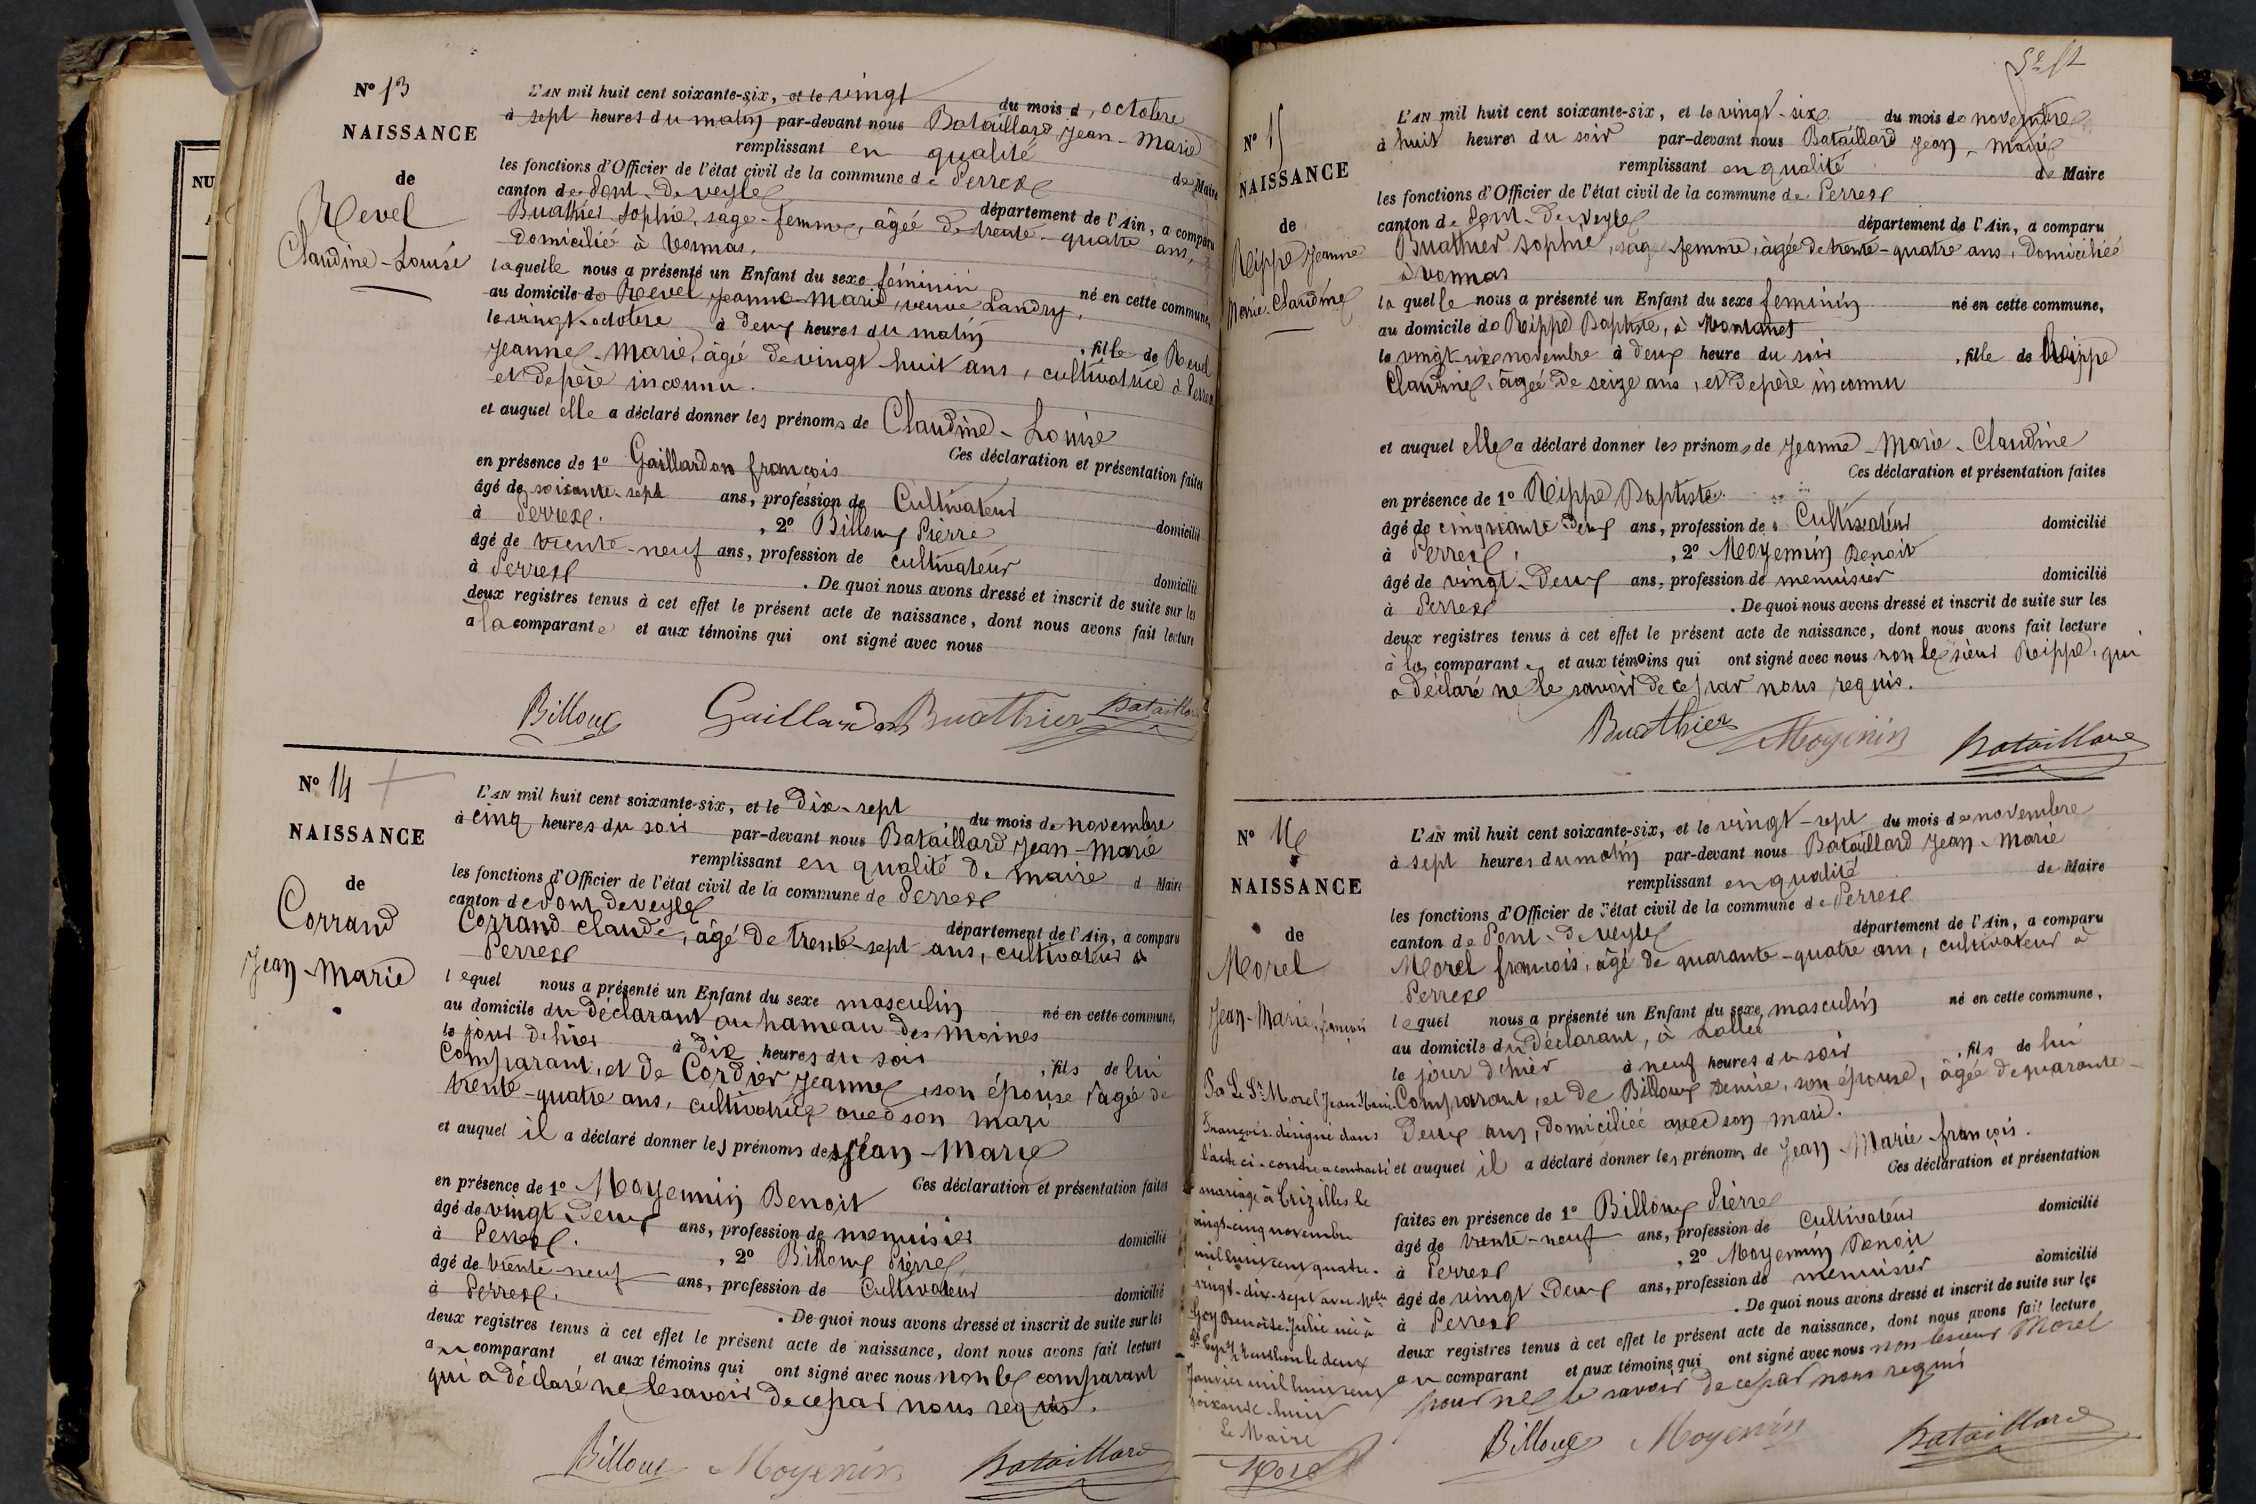 N° 13
NAISSANCE
de
Revel
Claudine-Louise
L'AN mil huit cent soixante-six, et le vingt du mois d'octobre
à sept heures du matin par-devant nous Bataillard Jean-Marie
remplissant en qualité de Maire
les fonctions d'Officier de l'état civil de la commune de Perrex
canton de Pont-de-veyle département de l'Ain, a comparu
Buathier Sophie, sage-femme, âgée de trente-quatre ans,
domicilié à Vonnas,
laquelle nous a présenté un Enfant du sexe féminin né en cette commune,
au domicile de Revel Jeanne-Marie, veuve Landry,
le vingt octobre à deux heures du matin, fille de Revel
Jeanne-Marie, âgée de vingt-huit ans, cultivatrice à Perrex
et de père inconnu.
et auquel elle a déclaré donner les prénoms de Claudine-Louise
Ces déclaration et présentation faites
en présence de 1° Gaillardon françois
âgé de soixante-sept ans, profession de Cultivateur
domicilié
à Perrex. , 2° Billoux Pierre
âgé de trente-neuf ans, profession de cultivateur
domicilié
à Perrex . De quoi nous avons dressé et inscrit de suite sur les
deux registres tenus à cet effet le présent acte de naissance, dont nous avons fait lecture
a la comparante et aux témoins qui ont signé avec nous
Billoux Gaillardon Buathier Bataillard
N° 14
NAISSANCE
de
Corrand
Jean-Marie
L'AN mil huit cent soixante-six, et le Dix-sept du mois de novembre
à cinq heures du soir par-devant nous Bataillard Jean-Marie
remplissant en qualité de maire d Maire
les fonctions d'Officier de l'état civil de la commune de Perrex
canton de Pont de veyle département de l'Ain, a comparu
Corrand Claude, âgé de trente-sept ans, cultivateur à
Perrex
lequel nous a présenté un Enfant du sexe masculin né en cette commune,
au domicile du déclarant au hameau des Moines
le jour d'hier à dix heures du soir , fils de lui
Comparant, et de Cordier Jeanne, son épouse, âgée de
trente-quatre ans, cultivatrice avec son mari
et auquel il a déclaré donner les prénoms de Jean-Marie
Ces déclaration et présentation faites
en présence de 1° Moyennin Benoit
âgé de vingt-Deux ans, profession de menuisier
domicilié
à Perrex. , 2° Billoux Pierre
âgé de trente-neuf ans, profession de Cultivateur
domicilié
à Perrex. . De quoi nous avons dressé et inscrit de suite sur les
deux registres tenus à cet effet le présent acte de naissance, dont nous avons fait lecture
au comparant et aux témoins qui ont signé avec nous non le comparant
qui a déclaré ne le savoir de ce par nous requis.
Billoux Moyenin Bataillard
N° 15
NAISSANCE
de
Rippe Jeanne
Marie-Claudine
L'AN mil huit cent soixante-six, et le vingt-six du mois de novembre
à huit heures du soir par-devant nous Bataillard Jean-Marie
remplissant en qualité de Maire
les fonctions d'Officier de l'état civil de la commune de Perrex
canton de Pont-de-veyle département de l'Ain, a comparu
Buathier Sophie, sage-femme, âgée de trente-quatre ans, domiciliée
à Vonnas
laquelle nous a présenté un Enfant du sexe féminin né en cette commune,
au domicile de Rippe Baptiste, à Montanet
le vingt six novembre à deux heure du soir , fille de Rippe
Claudine, âgée de seize ans, et de père inconnu
et auquel elle a déclaré donner les prénoms de Jeanne-Marie-Claudine
Ces déclaration et présentation faites
en présence de 1° Rippe Baptiste
âgé de cinquante deux ans, profession de Cultivateur domicilié
à Perrex, , 2° Moyennin Benoit
âgé de vingt-Deux ans, profession de menuisier domicilié
à Perrex . De quoi nous avons dressé et inscrit de suite sur les
deux registres tenus à cet effet le présent acte de naissance, dont nous avons fait lecture
à la comparante et aux témoins qui ont signé avec nous non le sieur Rippe, qui
a déclaré ne le savoir de ce par nous requis.
Buathier Moyenin Bataillard
N° 16
NAISSANCE
de
Morel
Jean-Marie, françois
Le Sr Morel Jean Marie
François désigné dans
l'acte ci-contre a contracté
mariage à Crizilles le
vingt-cinq novembre
mil huit cent quatre-
vingt-dix-sept avec Melle
Goy Benoite Julie née à
St Cyr s/ Menthon le deux
Janvier mil huit cent
soixante-huit
Le Maire
Morel
L'AN mil huit cent soixante-six, et le vingt-sept du mois de novembre
à sept heures du matin par-devant nous Bataillard Jean-Marie
remplissant en qualité de Maire
les fonctions d'Officier de l'état civil de la commune de Perrex
canton de Pont-de-veyle département de l'Ain, a comparu
Morel françois, âgé de quarante-quatre ans, cultivateur à
Perrex
lequel nous a présenté un Enfant du sexe masculin né en cette commune,
au domicile du déclarant, à
le jour d'hier à neuf heures du soir , fils de lui
Comparant, et de Billoux Denise, son épouse, âgée de quarante-
Deux ans, domiciliée avec son mari.
et auquel il a déclaré donner les prénoms de Jean-Marie-françois.
Ces déclaration et présentation
faites en présence de 1° Billoux Pierre domicilié
âgé de trente-neuf ans, profession de Cultivateur
à Perrex , 2° Moyennin Benoit
âgé de vingt-Deux ans, profession de menuisier domicilié
à Perrex . De quoi nous avons dressé et inscrit de suite sur les
deux registres tenus à cet effet le présent acte de naissance, dont nous avons fait lecture
au comparant et aux témoins qui ont signé avec nous non le sieur Morel
pour ne le savoir de ce par nous requis
Billoux Moyenin Bataillard